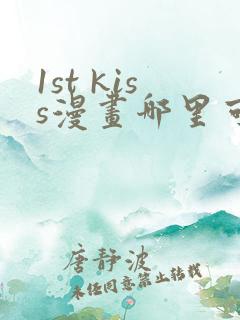 1st kis
s漫畫哪里可
唐静波
未经同意禁止转载